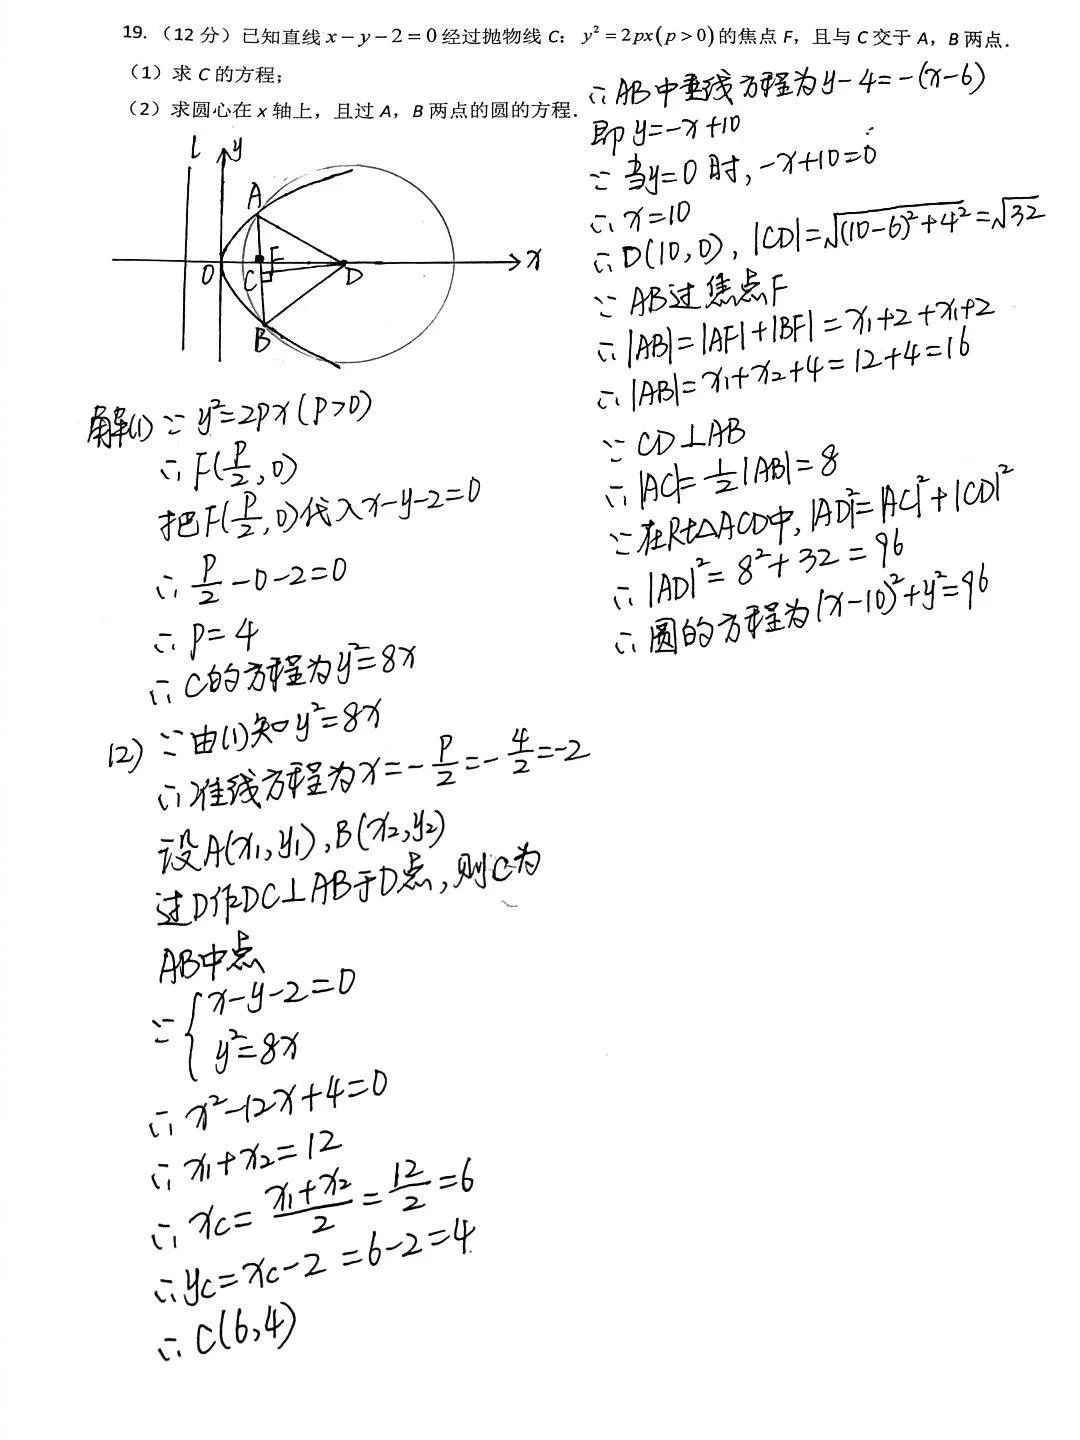 19.（12 分）已知直线 x－y－2＝0 经过抛物线 C： y²＝2px(p＞0) 的焦点 F，且与 C 交于 A，B 两点.
（1）求 C 的方程；
（2）求圆心在 x 轴上，且过 A，B 两点的圆的方程.
l y
A
O C F D x
B
解(1) ∵ y²=2px(p>0)
∴ F(p/2,0)
把F(p/2,0)代入x-y-2=0
∴ p/2-0-2=0
∴ p=4
∴ C的方程为y²=8x
(2) ∵ 由(1)知y²=8x
∴准线方程为x=-p/2=-4/2=-2
设A(x₁,y₁),B(x₂,y₂)
过D作DC⊥AB于D点,则C为
AB中点
∵ {x-y-2=0
y²=8x
∴ x²-12x+4=0
∴ x₁+x₂=12
∴ xc=(x₁+x₂)/2=12/2=6
∴ yc=xc-2=6-2=4
∴ C(6,4)
∴ AB中垂线方程为y-4=-(x-6)
即y=-x+10
∵ 当y=0时,-x+10=0
∴ x=10
∴ D(10,0), |CD|=√((10-6)²+4²)=√32
∵ AB过焦点F
∴ |AB|=|AF|+|BF|=x₁+2+x₁+2
∴ |AB|=x₁+x₂+4=12+4=16
∵ CD⊥AB
∴ |AC|=1/2|AB|=8
∵ 在Rt△ACD中, |AD|²=|AC|²+|CD|²
∴ |AD|²=8²+32=96
∴ 圆的方程为(x-10)²+y²=96